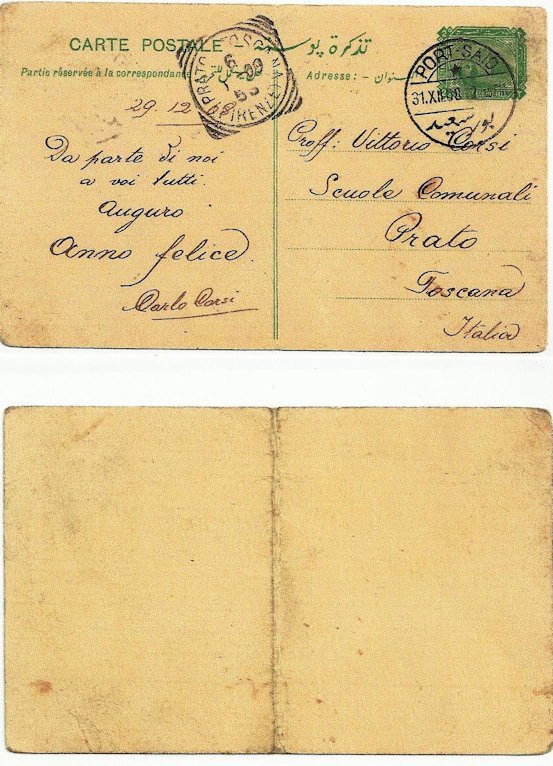 CARTE POSTALE تذكرة پوستة
Partie réservée à la correspondance
Adresse : عنوان
PORT-SAID
31.XII.08
بورسعيد
PRATO TOSCANA
(FIRENZE)
6
1 09
29 12 08
Da parte di noi
a voi tutti.
Auguro
Anno felice.
Carlo Corsi
Proff: Vittorio Corsi
Scuole Comunali
Prato
Toscana
Italia